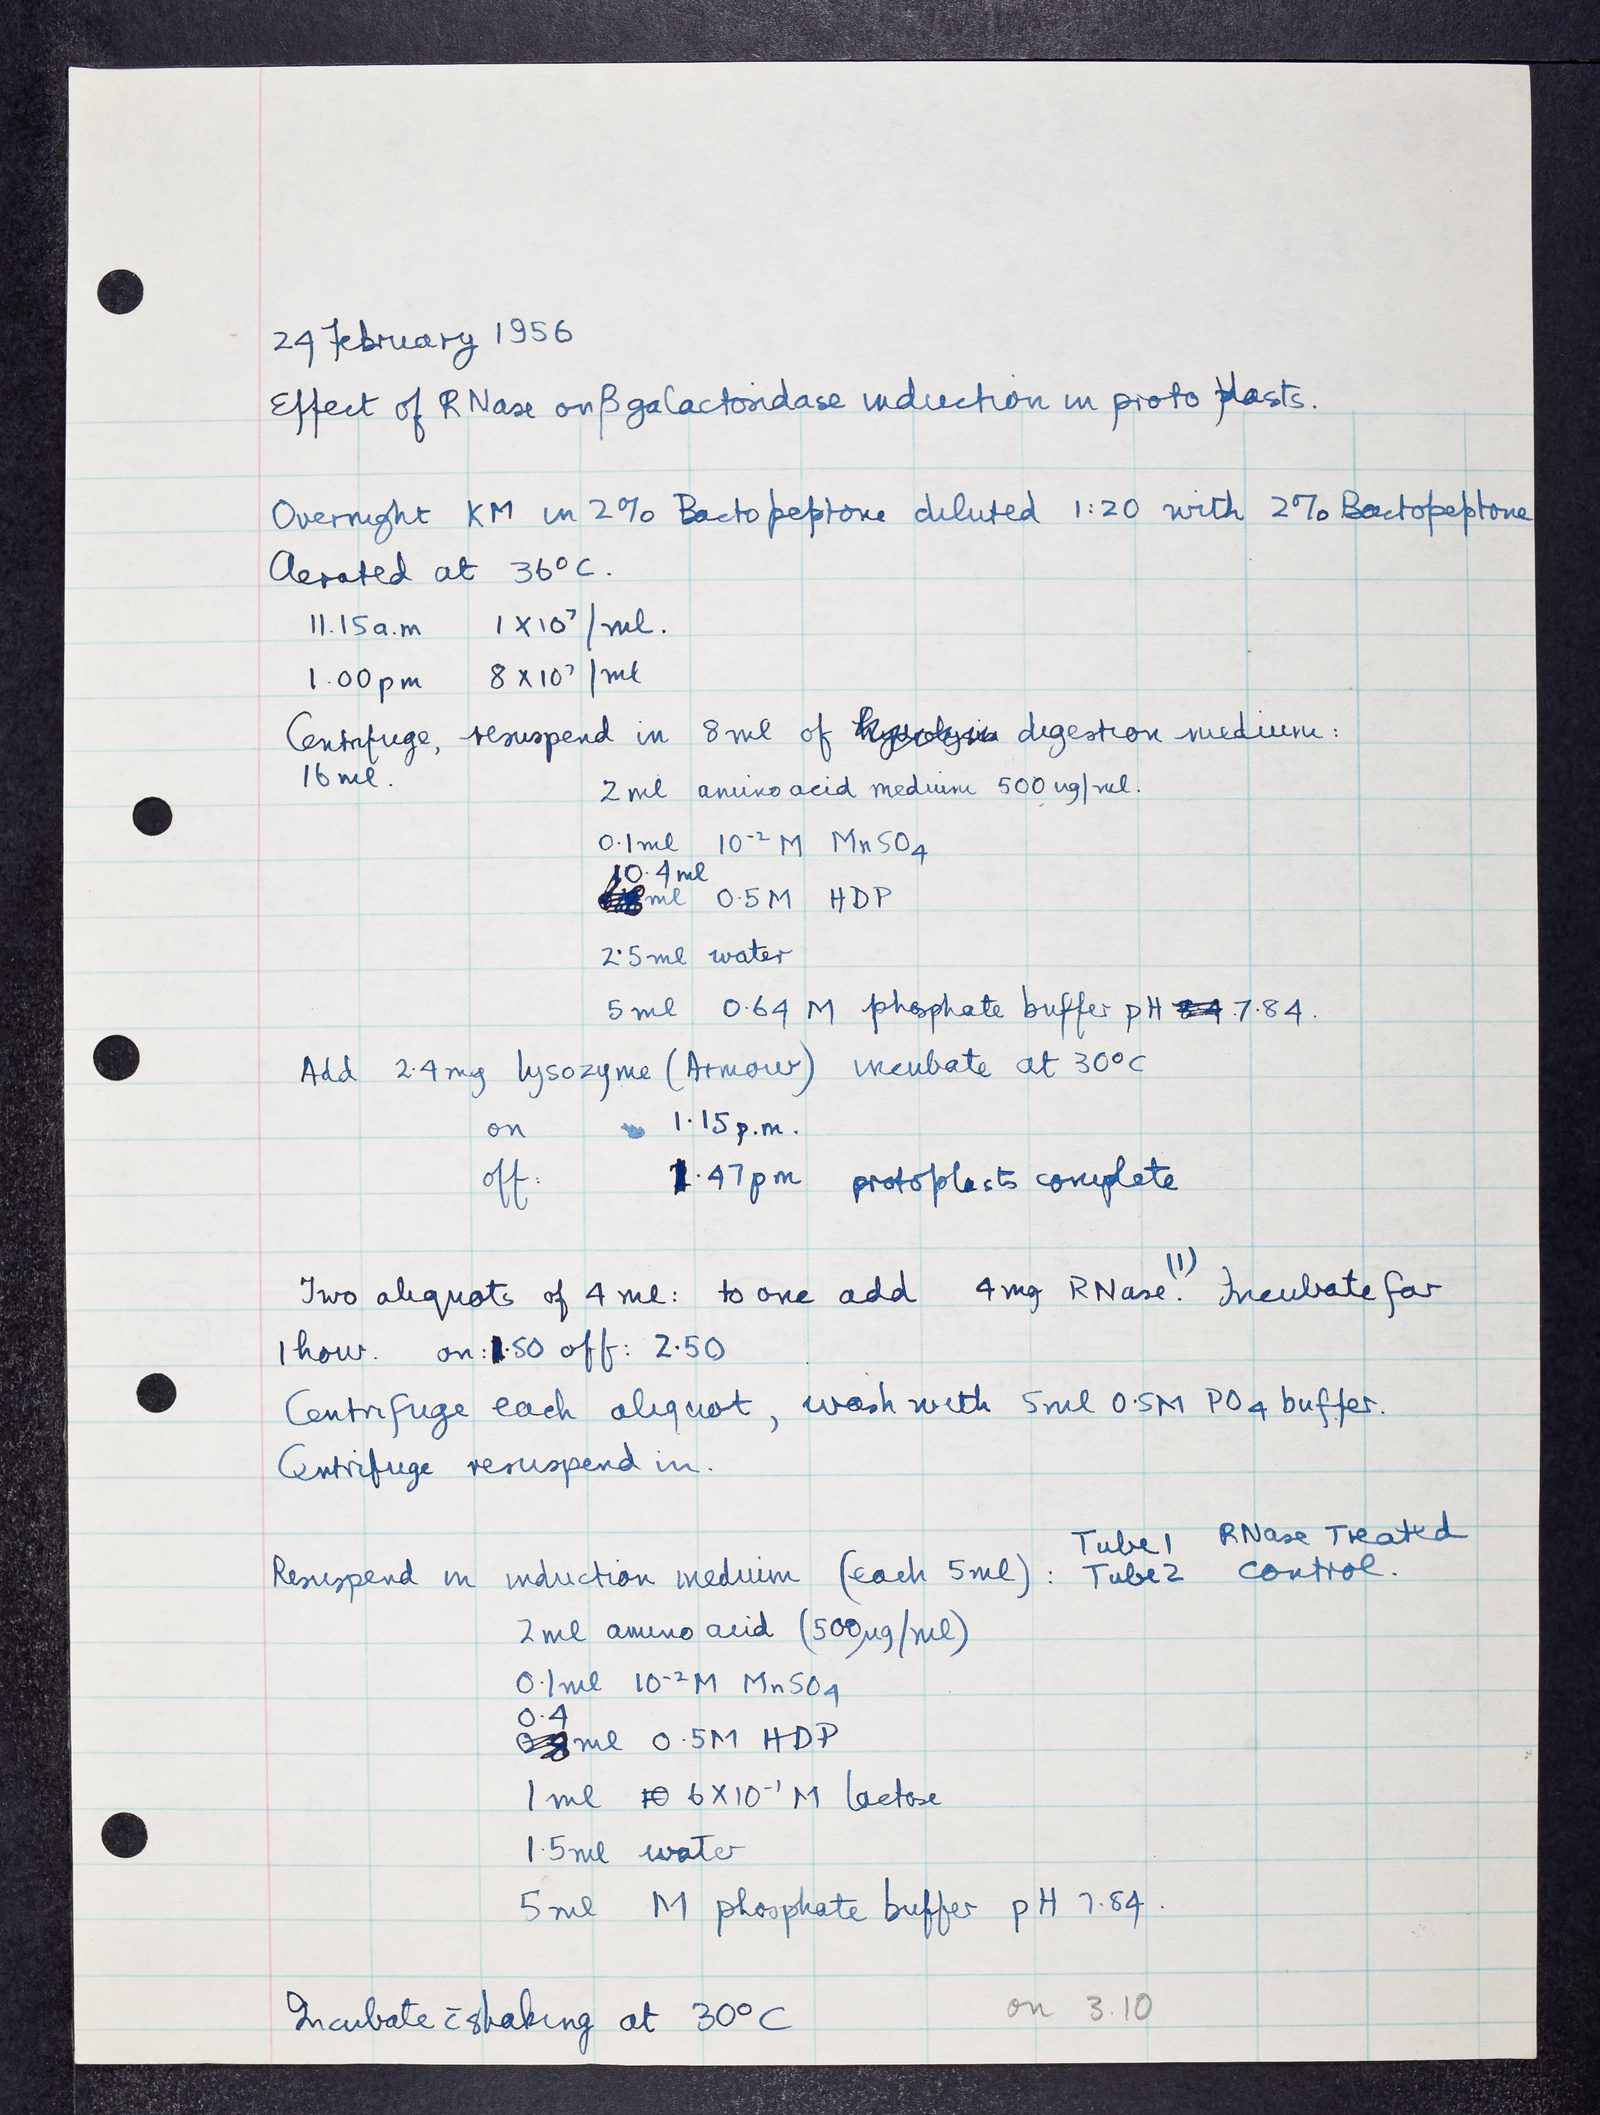 24 February 1956
Effect of RNase on β galactosidase induction in protoplasts.
Overnight KM in 2% Bactopeptone diluted 1:20 with 2% Bactopeptone
Aerated at 36°C.
11.15 a.m 1 X 10⁷/ml.
1.00 pm 8 X 10⁷/ml
Centrifuge, resuspend in 8 ml of digestion medium:
16 ml.
2 ml amino acid medium 500 ug/ml.
0.1 ml 10⁻² M MnSO₄
10.4 ml
ml 0.5 M HDP
2.5 ml water
5 ml 0.64 M phosphate buffer pH 8.4 7.84.
Add 2.4 mg lysozyme (Armour) incubate at 30°C
on 1.15 p.m.
off: 1.47 pm protoplasts complete
Two aliquots of 4 ml: to one add 4 mg RNase.(1) Incubate for
1 hour. on: 1.50 off: 2.50
Centrifuge each aliquot, wash with 5 ml 0.5M PO₄ buffer.
Centrifuge resuspend in.
Tube 1 RNase Treated
Resuspend in induction medium (each 5 ml): Tube 2 Control.
2 ml amino acid (500 µg/ml)
0.1 ml 10⁻² M MnSO₄
0.4
ml 0.5 M HDP
1 ml 10 6 X 10⁻¹ M lactose
1.5 ml water
5 ml M phosphate buffer pH 7.84.
Incubate c̄ shaking at 30°C on 3.10